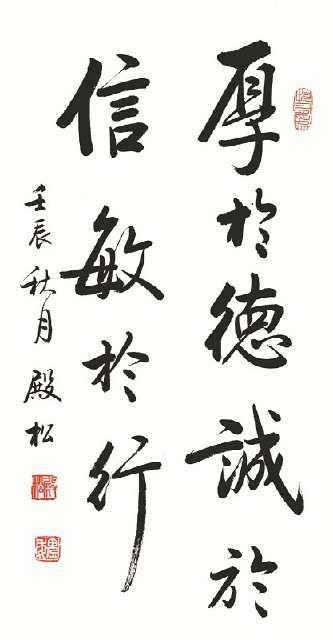 厚於德誠於
信敏於行
壬辰秋月殿松